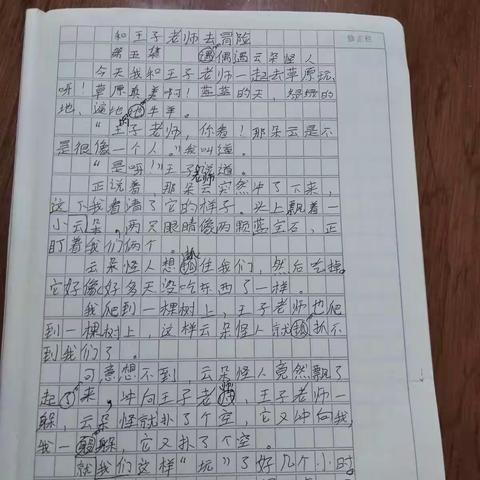 和王子老师去冒险
第五集 偶遇云朵怪人
今天我和王子老师一起去草原玩,
呀!草原真美啊!蓝蓝的天,绿绿的
地,遍地的牛羊。
“王子老师,你看!那朵云是不
是很像一个人。”我叫道。
“是呀!”王子老师道。
正说着,那朵云突然冲了下来,
这下我看清了它的样子。头上飘着一
小云朵。两只眼睛像两颗蓝宝石,正
盯着我们俩个。
云朵怪人想抓住我们,然后吃掉,
它好像好多天没吃东西了一样。
我爬到一棵树上,王子老师也爬
到一棵树上,这样云朵怪人就抓不
到我们了。
可意想不到 云朵怪人竟然飘了
起来,冲向王子老师,王子老师一
躲,云朵怪就扑了个空,它又冲向我,
我一躲,它又扑了个空。
就我们这样“玩”了好几个小时